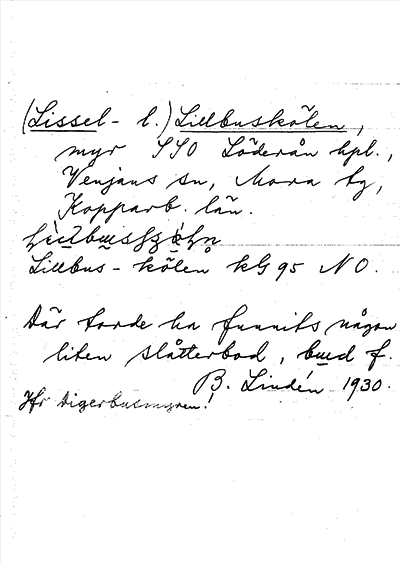 (Lissel- l.) Lillbuskölen,
myr SSO Söderån hpl.,
Venjans sn, Mora tg,
Kopparb. län.
Lillbus-kölen kG 95 NO.
Där torde ha funnits någon
liten slåtterbod, bud f.
B. Lindén 1930.
Jfr Digerbusmyren!